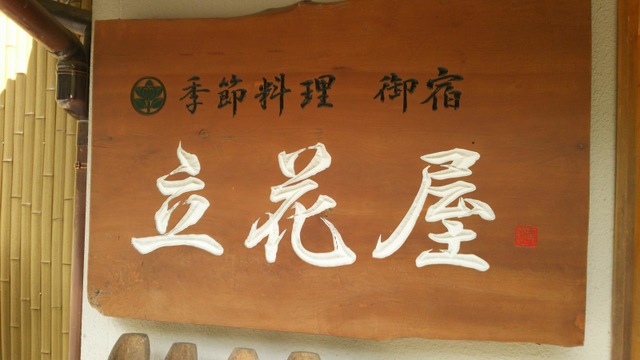 季節料理 御宿
立花屋